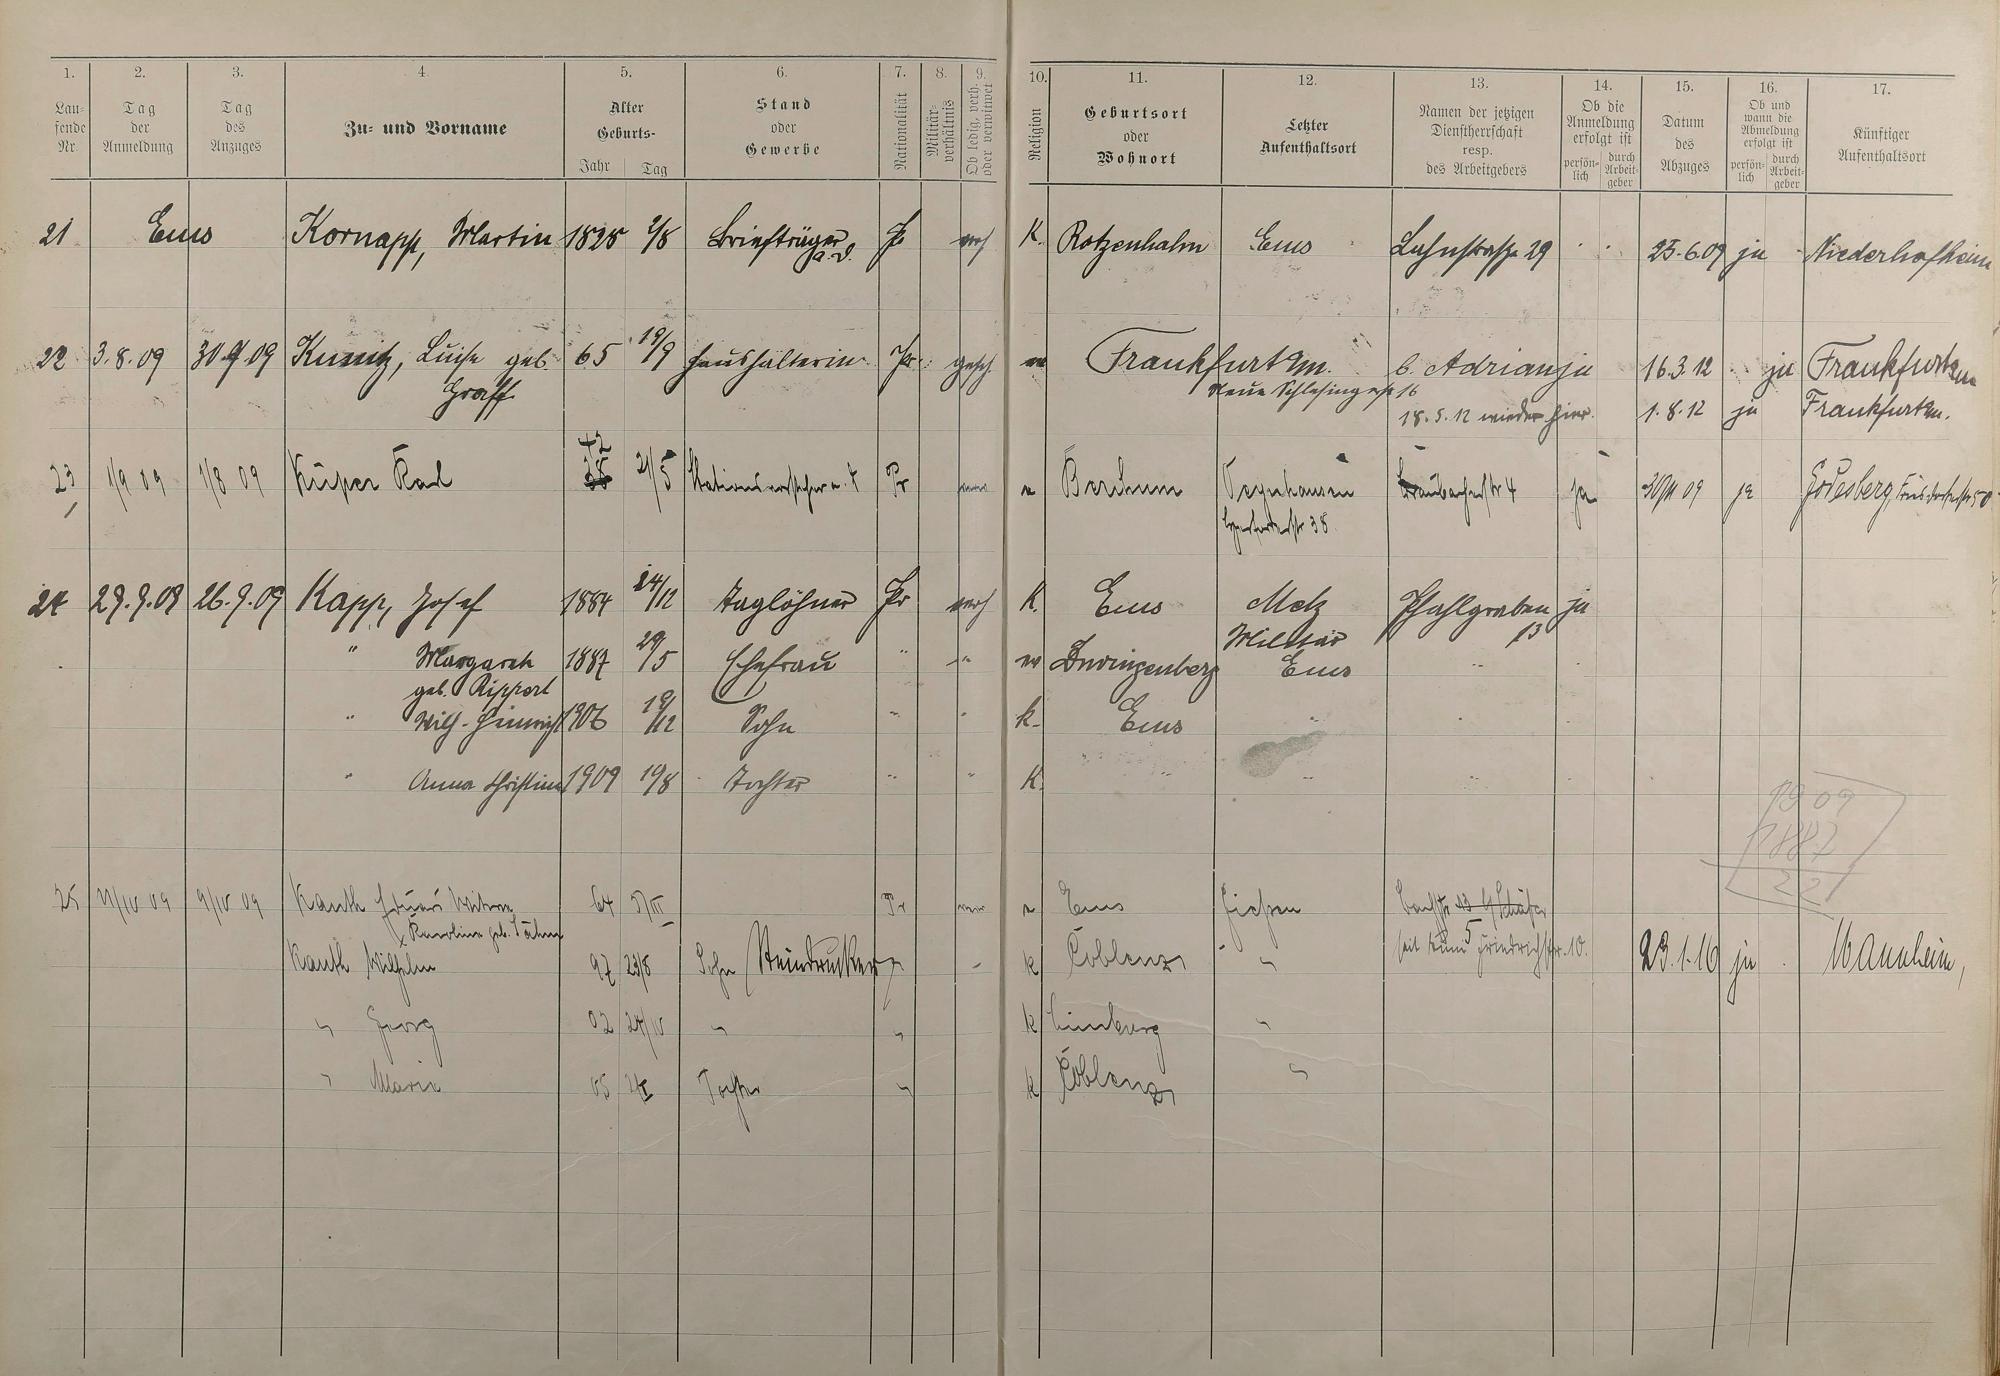 1. 2. 3. 4. 5. 6. 7. 8. 9. 10. 11. 12. 13. 14. 15. 16. 17.
Laufende Nr.
Tag der Anmeldung
Tag des Anzuges
Zu- und Vorname
Alter Geburts- Jahr Tag
Stand oder Gewerbe
Nationalität
Militärverhältnis
Ob ledig, verh. oder verwitwet
Religion
Geburtsort oder Wohnort
Letzter Aufenthaltsort
Namen der jetzigen Dienstherrschaft resp. des Arbeitgebers
Ob die Anmeldung erfolgt ist persönlich durch Arbeitgeber
Datum des Abzuges
Ob und wann die Abmeldung erfolgt ist persönlich durch Arbeitgeber
Künftiger Aufenthaltsort
21 Ems Kornapp, Martin 1825 2/8 Briefträger a.D. Pr verh K. Rotzenhahn Ems Lahnstraße 29 25.6.09 ja Niederhofheim
22 3.8.09 Luise geb. 65 19/9 Haushälterin Pr. gesch. Frankfurt a/m. b. Adrian ja 16.3.12 ja Frankfurt a/m
Gräff Neue Schlesingerstr 16
18.5.12 wieder hier. 1.8.12 ja Frankfurt a/m.
42
23 1/9 09 1/8 09 Küper Karl 21/5 Stationsvorsteher a. D Pr Berchum Oeynhausen Braubacherstr 4 ja 09 ja Godesberg,
38
24 29.9.09 26.9.09 Kapp, Josef 1884 24/12 Taglöhner Pr verh K. Ems Metz Pfahlgraben ja
Militär 13
" Margareth 1887 29/5 Ehefrau " " Zwingenberg Ems "
geb. Rippert
" Wilh. Heinrich 1906 19/12 Sohn " " k. Ems " "
" Anna Christine 1909 19/8 Tochter " " K. "
1909
1887
22
25 11/IV 09 9/IV 09 Kauth Eduard Witwe 64 5/III Pr Ems Gießen
Karoline geb. seit Friedrichstr. 10.
Kauth Wilhelm 97 23/8 Sohn Steindrucker k Coblenz " 23.1.16 ja Mannheim,
" Georg 02 24/IV " " k Limburg "
" Maria 05 Tochter " k Coblenz "